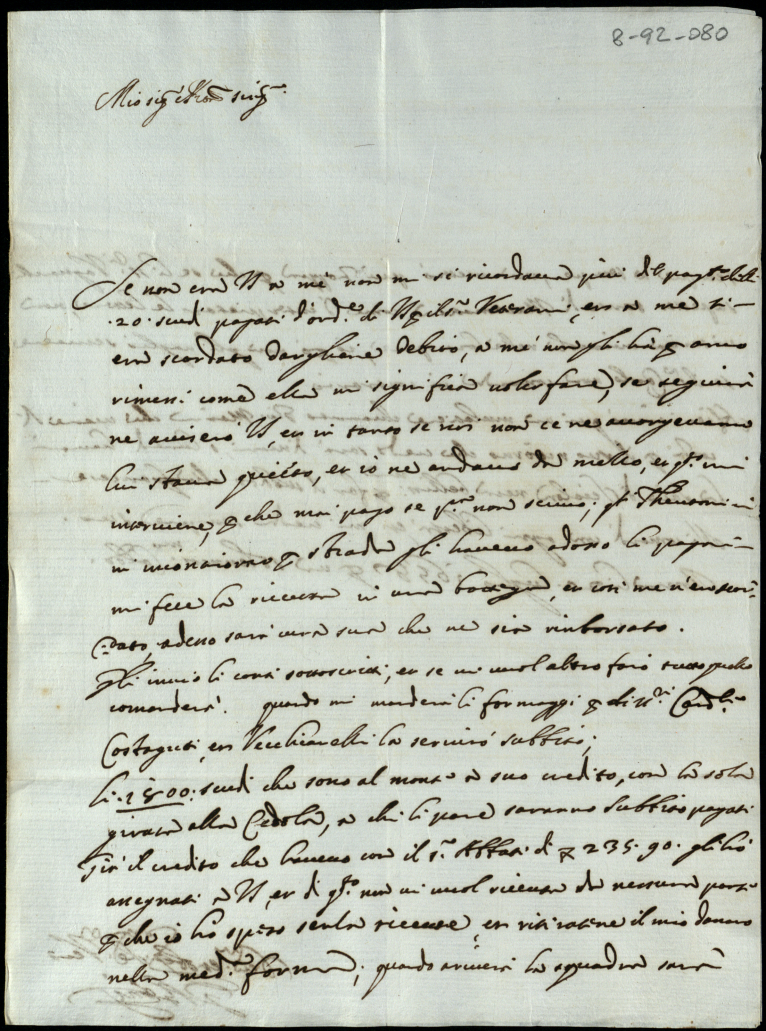 8-92-080
Mio sig.r
Se non era VS a me non mi si ricordava più del pag.to delli
20 scudi pagati d'ord.e di VS il s.r Veterani, et a me si
era scordato dargliene debito, a me non gli ha p anco
rimessi come ella mi significa voler fare, se seguirà
ne aviserò VS, et in tanto se noi non ce ne avorgevamo
lui stava quieto, et io ne andavo di mezzo, et q.to mi
interviene, p che mai pago se p.ma non scrivo;
mi incontrorno p strada gli havevo adosso li pagai
mi fece la riceuta in una bottega, et così me n'ero scor-
dato, adesso sarà cura sua che ne sia rimborsato.
gli invio li conti sottoscritti, et se mi vuol altro farò tutto quello
comanderà. quando mi manderà li formaggi p di SS.ri Card.li
Costaguti, et Vecchiarelli la servirò subbito;
li 1500 scudi che sono al monte a suo credito, con la sola
girata alla Cedola, a chi li pare saranno subbito pagati
il credito che havevo con il s.r Abbati di 235.90. gli hò
assegnati a VS, et di q.to non mi vuol riceuta da nessuna parte
p che io hò speso senza riceute, et ritiratene il mio danaro
nella med.a forma; quando arriverà la squadra sarà